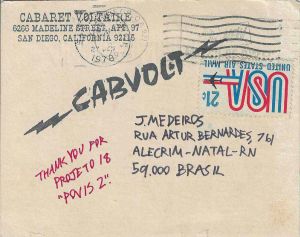 CABARET VOLTAIRE
6266 MADELINE STREET, APT. 97
SAN DIEGO, CALIFORNIA 92115
1978
21¢
USA
UNITED STATES AIR MAIL
CABVOLT
J. MEDEIROS
RUA ARTUR BERNARDES, 761
ALECRIM-NATAL-RN
59.000 BRASIL
THANK YOU FOR
PROJETO 18
"POVIS 2".